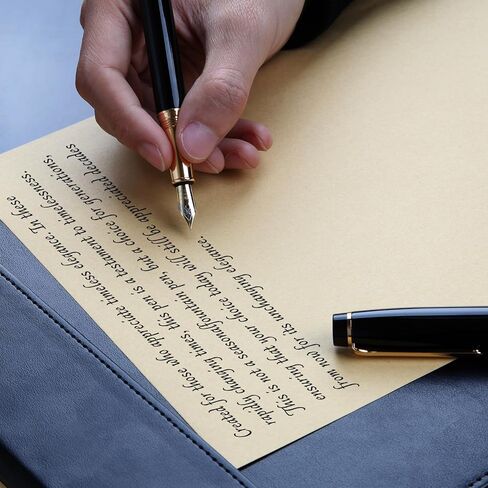 Created for those who appreciate timeless elegance. In these
rapidly changing times, this pen is a testament to timelessness.
This is not a seasonalfountain pen, but a choice for generations,
ensuring that your choice today will still be appreciated decades
from now for its unchanging elegance.